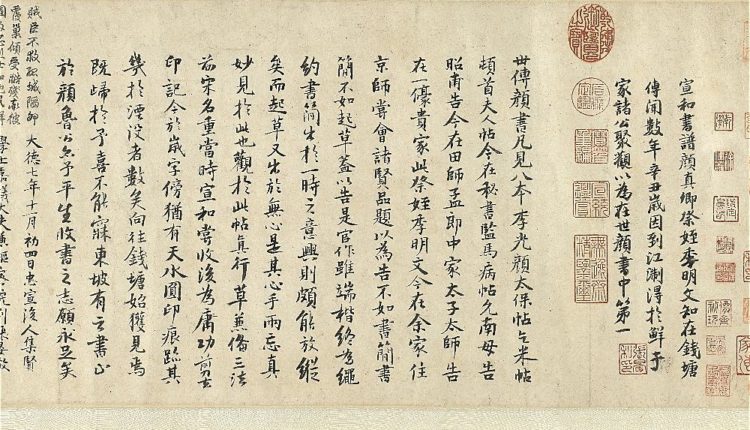 宣和書譜顏真卿祭姪季明文知在錢塘
傳聞數年辛丑歲因到江淛得於鮮于
家諸公聚觀以為在世顏書中第一
世傳顏書凡見八本李光顏太保帖乞米帖
頓首夫人帖今在秘書監馬病帖允南母告
昭甫告今在田師孟郎中家太子太師告
在一豪貴家此祭姪季明文今在余家住
京師嘗會諸賢品題以為告不如書簡書
簡不如起草蓋以告是官作雖端楷終為繩
約書簡出於一時之意興則頗能放縱
矣而起草又出於無心是其心手兩忘真
妙見於此也觀於此帖真行草兼備三法
前宋名重當時宣和嘗收後為庸功剪去
印記今於歲字傍猶有天水圓印痕蹟其
幾於湮沒者數矣向往錢塘始獲見焉
既歸於予喜不能寐東坡有云書止
於顏魯公矣予平生收書之志願永足矣
大德七年十一月初四日忠宣後人集賢
賊臣不救孤城圍